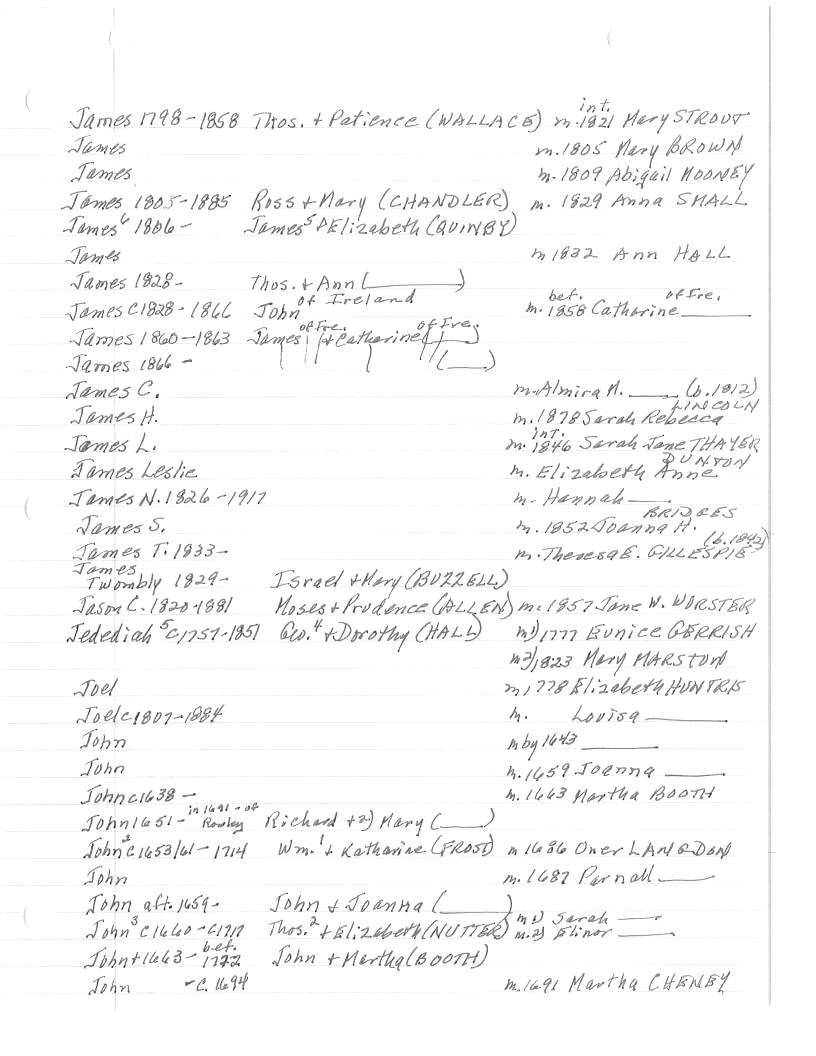 James 1798-1858 Thos. + Patience (WALLACE) m. int. 1821 Mary STROUT
James m. 1805 Mary BROWN
James m. 1809 Abigail MOONEY
James 1805-1885 Ross + Mary (CHANDLER) m. 1829 Anna SMALL
James⁶ 1806- James⁵ + Elizabeth (QUINBY)
James m 1832 Ann HALL
James 1828- Thos. + Ann (______)
James C1828-1866 John of Ireland m. bef. 1858 Catharine ______ of Ire.
James 1860-1863 James of Ire. (+ Catharine (___) of Ire.
James 1866- (___)
James C. m. Almira M. ____ (b. 1812)
James H. m. 1878 Sarah Rebecca LINCOLN
James L. m. int. 1846 Sarah Jane THAYER
James Leslie m. Elizabeth Anne DUNTON
James N. 1826-1917 m. Hannah ____
James S. m. 1852 Joanna H. BRIDGES
James T. 1833- m. Theresa E. GILLESPIE (b. 1842)
James
Twombly 1829- Israel + Mary (BUZZELL)
Jason C. 1820-1881 Moses + Prudence (ALLEN) m. 1857 Jane W. WORSTER
Jedediah⁵ C1757-1851 Geo.⁴ + Dorothy (HALL) m 1) 1777 Eunice GERRISH
m 2) 1823 Mary MARSTON
Joel m 1778 Elizabeth HUNTRIS
Joel c1807-1884 m. Louisa ______
John m by 1643 ______
John m. 1659 Joanna ______
John c1638- m. 1663 Martha BOOTH
John 1651- in 1691 - of Rowley Richard + 2) Mary (____)
John² C1653/61-1714 Wm.¹ + Katharine (FROST) m 1686 Oner LANGDON
John m. 1687 Parnall ____
John aft. 1659- John + Joanna (______)
John³ C1660-C1717 Thos.² + Elizabeth (NUTTER) m 1) Sarah ____
m. 2) Elinor ____
John + 1663- bef. 1772 John + Martha (BOOTH)
John - C. 1694 m. 1691 Martha CHENEY